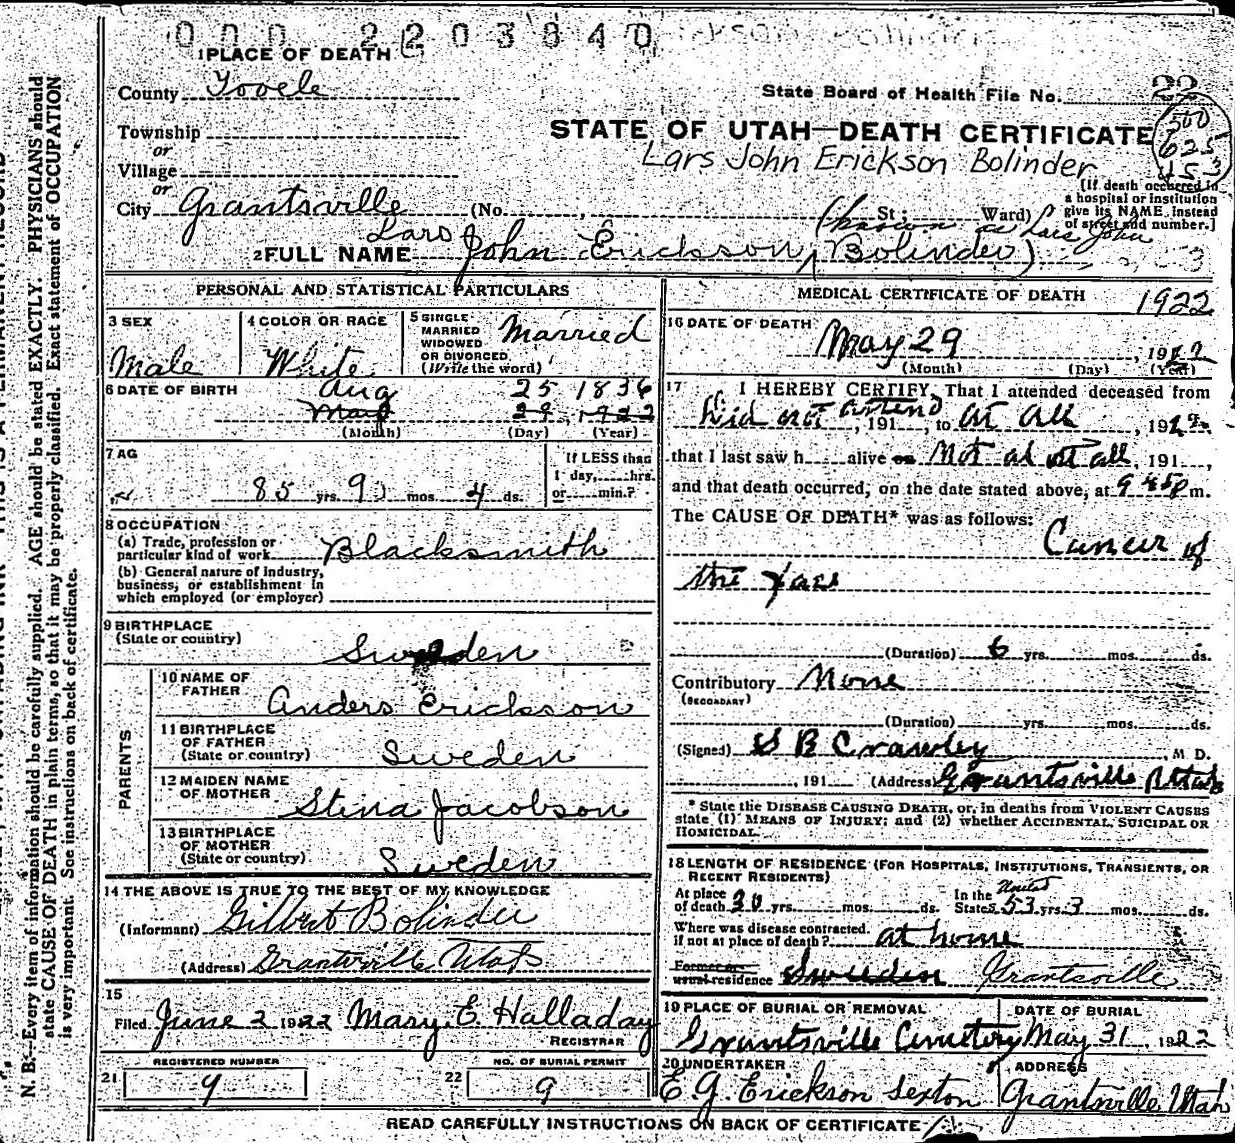 000 2203840
1 PLACE OF DEATH
County Tooele
State Board of Health File No. 22
Township
or
STATE OF UTAH—DEATH CERTIFICATE
500
625
153
Lars John Erickson Bolinder
Village
or
City Grantsville (No. St; Ward)
[If death occurred in
a hospital or institution
give its NAME instead
of street and number.]
(known as Lars John
2 FULL NAME Lars John Erickson, (Bolinder) 3
PERSONAL AND STATISTICAL PARTICULARS
3 SEX
Male
4 COLOR OR RACE
White
5 SINGLE
MARRIED
WIDOWED
OR DIVORCED
(Write the word)
Married
6 DATE OF BIRTH
Aug 25 1836
May 29, 1922
(Month) (Day) (Year)
7 AG
85 yrs. 9 mos. 4 ds.
If LESS than
1 day, hrs.
or min.?
8 OCCUPATION
(a) Trade, profession or
particular kind of work Blacksmith
(b) General nature of industry,
business, or establishment in
which employed (or employer)
9 BIRTHPLACE
(State or country)
Sweden
PARENTS
10 NAME OF
FATHER
Anders Erickson
11 BIRTHPLACE
OF FATHER
(State or country)
Sweden
12 MAIDEN NAME
OF MOTHER
Stina Jacobson
13 BIRTHPLACE
OF MOTHER
(State or country)
Sweden
14 THE ABOVE IS TRUE TO THE BEST OF MY KNOWLEDGE
(Informant) Gilbert Bolinder
(Address) Grantsville Utah
15
Filed June 2 1922 Mary E. Halladay
REGISTRAR
REGISTERED NUMBER
21 9
NO. OF BURIAL PERMIT
22 9
MEDICAL CERTIFICATE OF DEATH 1922
16 DATE OF DEATH
May 29, 1922
(Month) (Day) (Year)
17 I HEREBY CERTIFY, That I attended deceased from
Did not attend, 191, to at all, 192
that I last saw h alive on Not at all, 191,
and that death occurred, on the date stated above, at 9 45 p m.
The CAUSE OF DEATH* was as follows:
Cancer of
the face
(Duration) 6 yrs. mos. ds.
Contributory None
(SECONDARY)
(Duration) yrs. mos. ds.
(Signed) S B Crawley M D.
, 191 (Address) Grantsville Utah
* State the DISEASE CAUSING DEATH, or, in deaths from VIOLENT CAUSES
state (1) MEANS OF INJURY; and (2) whether ACCIDENTAL, SUICIDAL OR
HOMICIDAL.
18 LENGTH OF RESIDENCE (FOR HOSPITALS, INSTITUTIONS, TRANSIENTS, OR
RECENT RESIDENTS)
At place
of death 30 yrs. mos. ds.
In the United
States 53 yrs. 3 mos. ds.
Where was disease contracted
if not at place of death? at home
Former or
usual residence Sweden Grantsville
19 PLACE OF BURIAL OR REMOVAL
Grantsville Cemetery
DATE OF BURIAL
May 31, 1922
20 UNDERTAKER
E G. Erickson Sexton
ADDRESS
Grantsville Utah
READ CAREFULLY INSTRUCTIONS ON BACK OF CERTIFICATE
N. B.—Every item of information should be carefully supplied. AGE should be stated EXACTLY. PHYSICIANS should
state CAUSE OF DEATH in plain terms, so that it may be properly classified. Exact statement of OCCUPATION
is very important. See instructions on back of certificate.